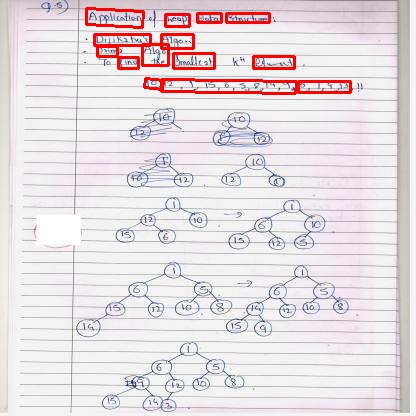 Q.5)
Application of heap data structure:
Dijiktra's Algori
Prims Algo
To find the smallest kth Element.
10, 12, 1, 15, 6, 5, 8, 14, 9, 3, 1, 4, 13 !!
10
12
10
1 12
1
10 12
10
12 1
1
12 10
15 6
→
1
6 10
15 12 5
1
6 5
15 12 10 8
14
→
1
6 5
14 12 10 8
15 9
1
6 5
9 12 10 8
15 14 3